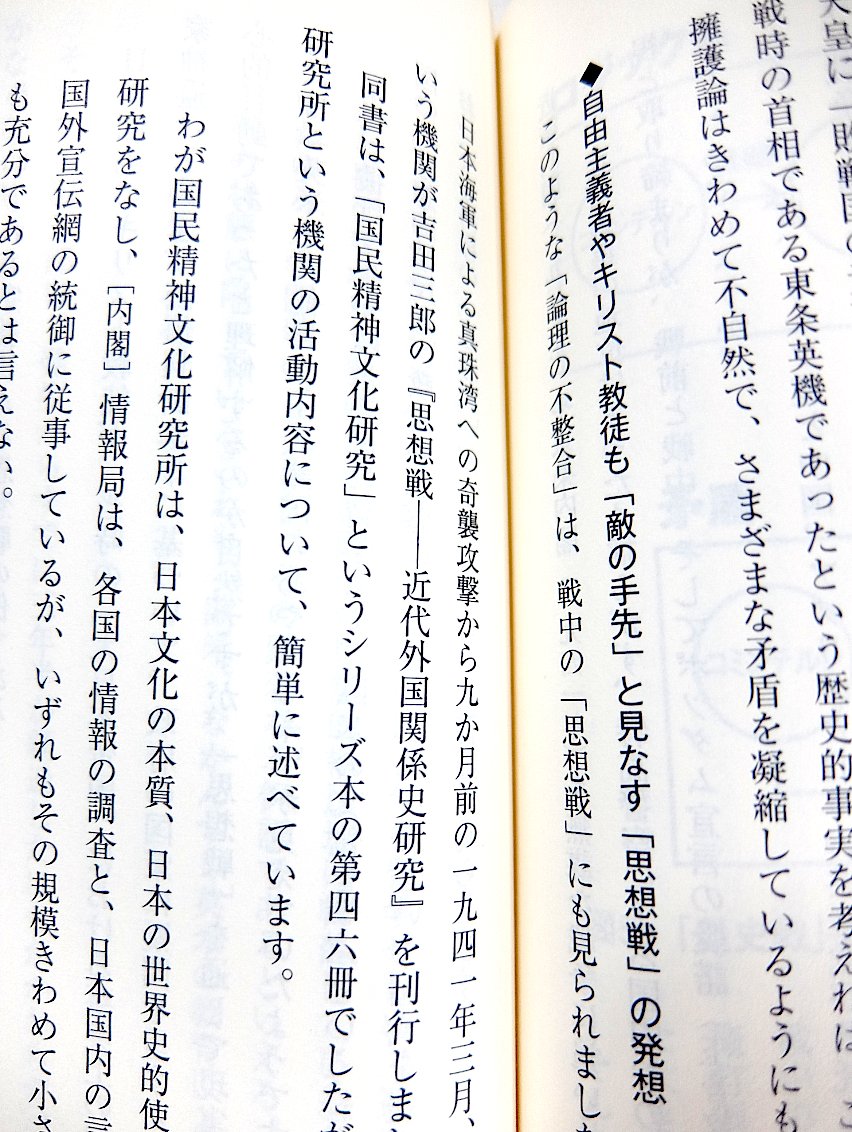 天皇に「敗戦国の
戦時の首相である東条英機であったという歴史的事実を考えれば、こ
擁護論はきわめて不自然で、さまざまな矛盾を凝縮しているようにも
◆自由主義者やキリスト教徒も「敵の手先」と見なす「思想戦」の発想
このような「論理の不整合」は、戦中の「思想戦」にも見られました
日本海軍による真珠湾への奇襲攻撃から九か月前の一九四一年三月、
いう機関が吉田三郎の『思想戦――近代外国関係史研究』を刊行しまし
同書は、「国民精神文化研究」というシリーズ本の第四六冊でしたが
研究所という機関の活動内容について、簡単に述べています。
わが国民精神文化研究所は、日本文化の本質、日本の世界史的使
研究をなし、［内閣］情報局は、各国の情報の調査と、日本国内の言
国外宣伝網の統御に従事しているが、いずれもその規模きわめて小さ
も充分であるとは言えない。